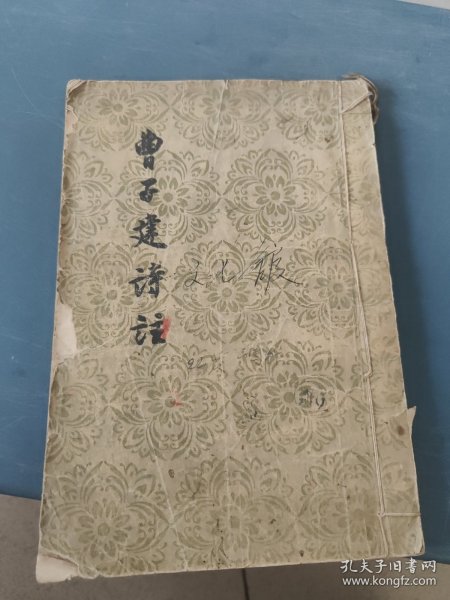 曹子建詩註
文化館
孔夫子旧书网
www.kongfz.com